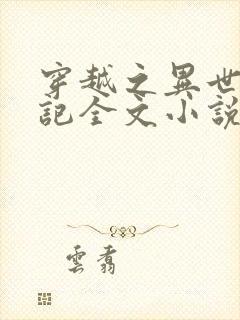 穿越之異世
記全文小說
雲翥